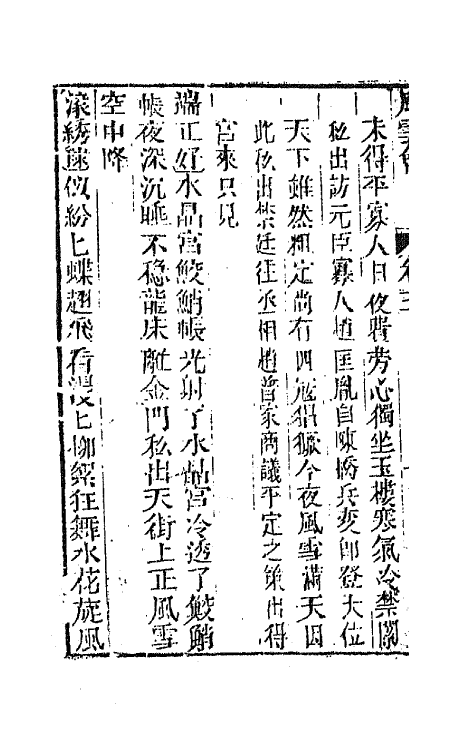 未得平寡人日夜費劳心獨坐玉樓寒氣冷禁闈
私出訪元臣寡人趙匡胤自陳橋兵変即登大位
天下雖然粗定尚有四冦猖獗今夜風雪滿天因
此私出禁廷往丞相趙普家商議平定之策出得
宮來只見
端正好水晶宮鮫鮹帳光射了水晶宮冷透了鮫鮹
帳夜深沉睡不稳龍床離金門私出天街上正風雪
空中降
滾綉毬似紛匕蝶翅飛看漫匕柳絮狂舞氷花旋風